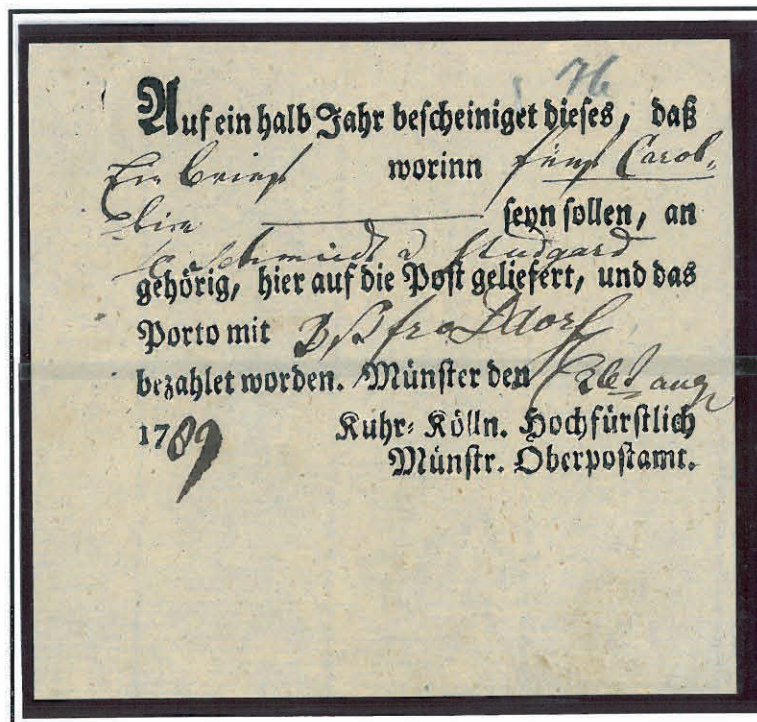 76
Auf ein halb Jahr bescheiniget dieses, daß
Ein brief worinn fünf Carol-
lin seyn sollen, an
schmidt Studgard
gehörig, hier auf die Post geliefert, und das
Porto mit 3 ß fro Ddorf
bezahlet worden. Münster den 26t aug
1789 Kuhr- Kölln. Hochfürstlich
Münstr. Oberpostamt.